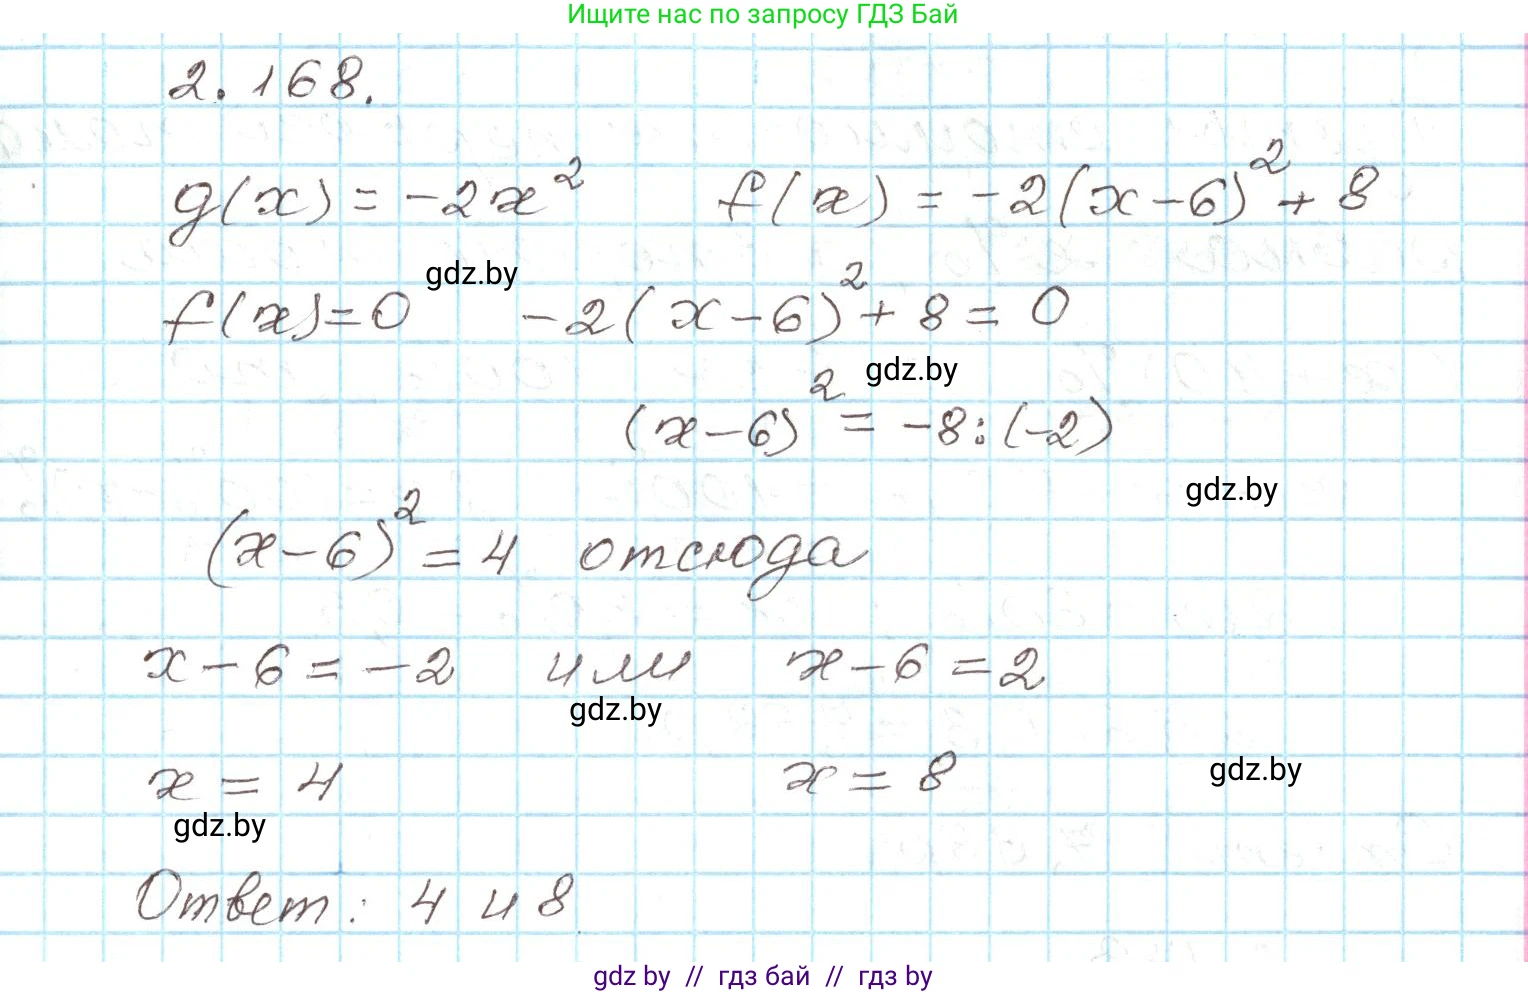 Ищите нас по запросу ГДЗ Бай
2.168.
g(x) = -2x² f(x) = -2(x-6)² + 8
gdz.by
f(x)=0 -2(x-6)² + 8 = 0
gdz.by
(x-6)² = -8:(-2)
gdz.by
(x-6)² = 4 отсюда
x-6=-2 или x-6=2
gdz.by
x = 4 x = 8
gdz.by
gdz.by
Ответ: 4 и 8
gdz by // гдз бай // гдз by